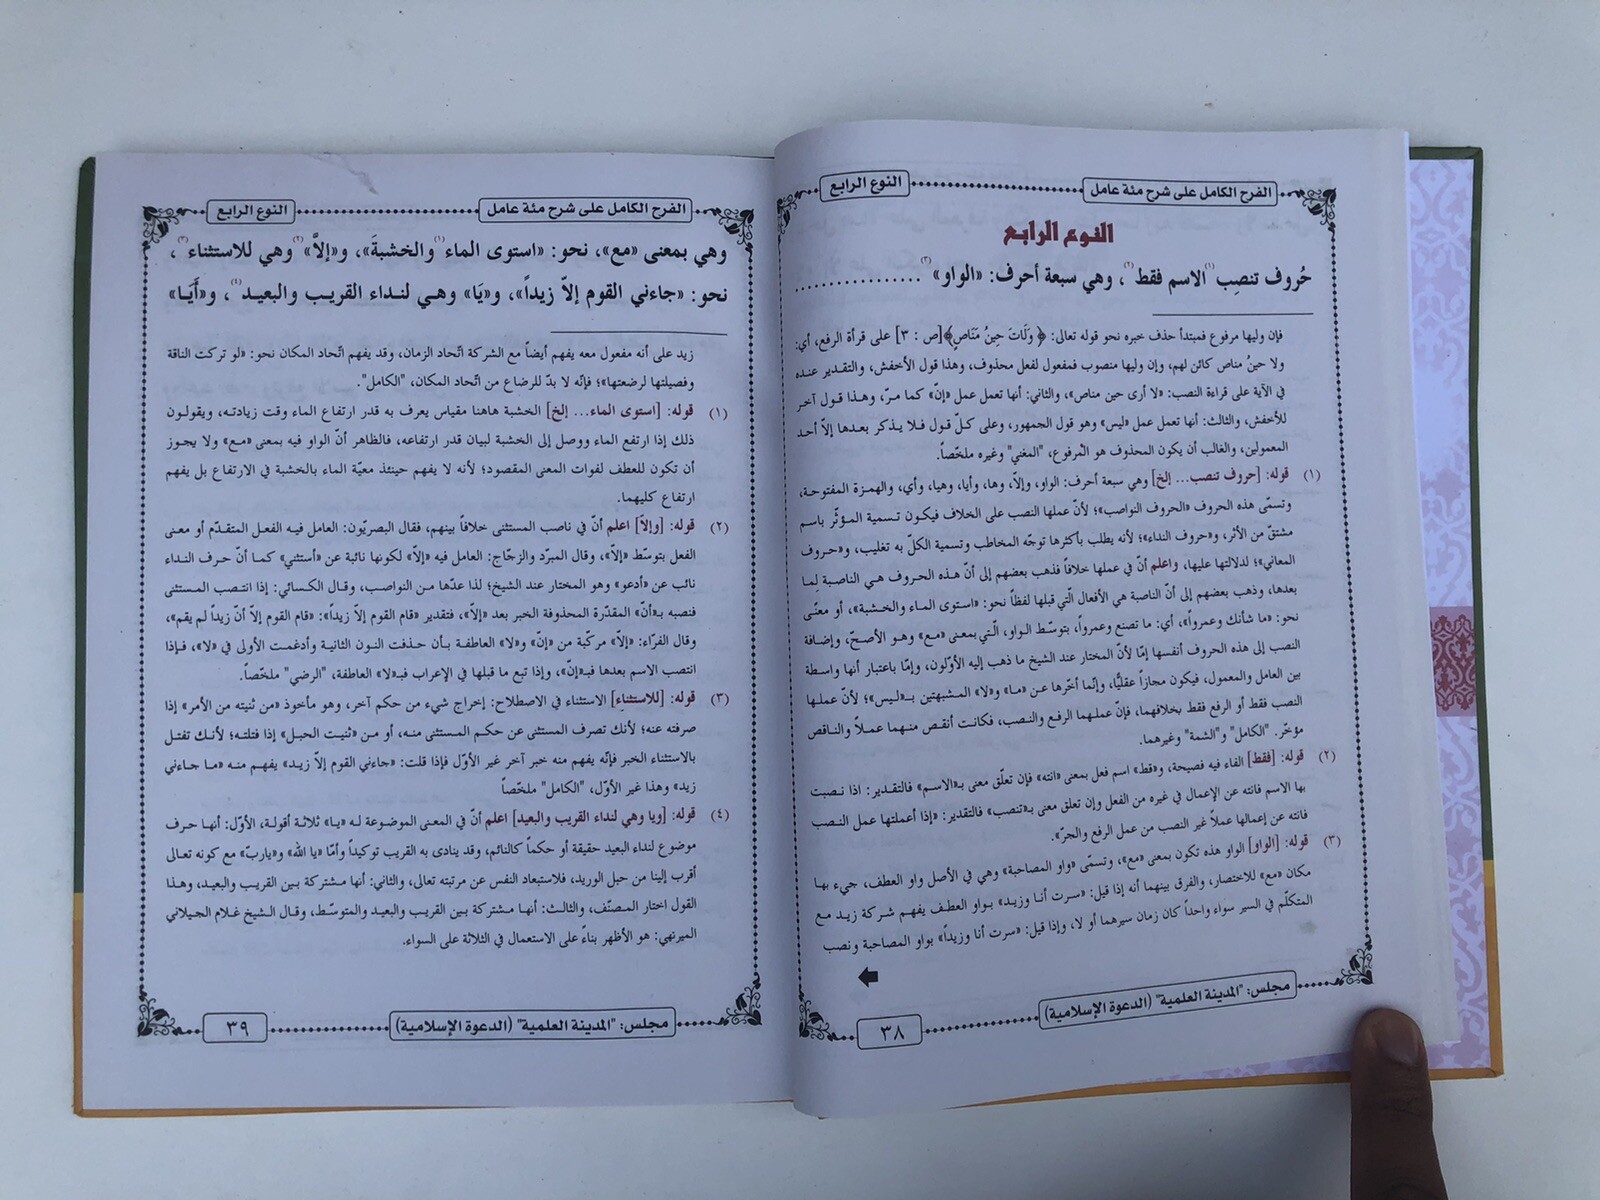 الفرح الكامل على شرح مئة عامل
النوع الرابع
النوع الرابع
حُروف تنصِب(١) الاسم فقط(٢)، وهي سبعة أحرف: «الواو»(٣) .................
فإن وليها مرفوع فمبتدأ حذف خبره نحو قوله تعالى: ﴿وَلَاتَ حِينُ مَنَاصٍ﴾[ص : ٣] على قرأة الرفع، أي:
ولا حينُ مناص كائن لهم، وإن وليها منصوب فمفعول لفعل محذوف، وهذا قول الأخفش، والتقدير عنده
في الآية على قراءة النصب: «لا أرى حين مناص»، والثاني: أنها تعمل عمل «إنّ» كما مرّ، وهذا قول آخر
للأخفش، والثالث: أنها تعمل عمل «ليس» وهو قول الجمهور، وعلى كلّ قول فلا يذكر بعدها إلاّ أحد
المعمولين، والغالب أن يكون المحذوف هو المرفوع، "المغني" وغيره ملخّصاً.
(١) قوله: [حروف تنصب... إلخ] وهي سبعة أحرف: الواو، وإلاّ، وها، وأيا، وهيا، وأي، والهمزة المفتوحة،
وتسمّى هذه الحروف «الحروف النواصب»؛ لأنّ عملها النصب على الخلاف فيكون تسمية المؤثّر باسم
مشتقّ من الأثر، و«حروف النداء»؛ لأنه يطلب بأكثرها توجّه المخاطب وتسمية الكلّ به تغليب، و«حروف
المعاني»؛ لدلالتها عليها، واعلم أنّ في عملها خلافاً فذهب بعضهم إلى أنّ هذه الحروف هي الناصبة لِما
بعدها، وذهب بعضهم إلى أنّ الناصبة هي الأفعال الّتي قبلها لفظاً نحو: «استوى الماء والخشبة»، أو معنًى
نحو: «ما شأنك وعمرواً»، أي: ما تصنع وعمرواً، بتوسّط الواو، الّتي بمعنى «مع» وهو الأصحّ، وإضافة
النصب إلى هذه الحروف أنفسها إمّا لأنّ المختار عند الشيخ ما ذهب إليه الأوّلون، وإمّا باعتبار أنها واسطة
بين العامل والمعمول، فيكون مجازاً عقليًّا، وإنّما أخّرها عن «ما» و«لا» المشبهتين بـ«ليس»؛ لأنّ عملها
النصب فقط أو الرفع فقط بخلافهما، فإنّ عملهما الرفع والنصب، فكانت أنقص منهما عملاً والناقص
مؤخّر. "الكامل" و"الشمة" وغيرهما.
(٢) قوله: [فقط] الفاء فيه فصيحة، و«قط» اسم فعل بمعنى «انته» فإن تعلّق معنى بـ«الاسم» فالتقدير: اذا نصبت
بها الاسم فانته عن الإعمال في غيره من الفعل وإن تعلق معنى بـ«تنصب» فالتقدير: «إذا أعملتها عمل النصب
فانته عن إعمالها عملاً غير النصب من عمل الرفع والجرّ».
(٣) قوله: [الواو] الواو هذه تكون بمعنى «مع»، وتسمّى «واو المصاحبة» وهي في الأصل واو العطف، جيء بها
مكان «مع» للاختصار، والفرق بينهما أنه إذا قيل: «سرت أنا وزيد» بواو العطف يفهم شركة زيد مع
المتكلّم في السير سواء واحداً كان زمان سيرهما أو لا، وإذا قيل: «سرت أنا وزيداً» بواو المصاحبة ونصب
مجلس: "المدينة العلمية" (الدعوة الإسلامية)
٣٨
الفرح الكامل على شرح مئة عامل
النوع الرابع
وهي بمعنى «مع»، نحو: «استوى الماء(١) والخشبةَ»، و«إلاَّ»(٢) وهي للاستثناء(٣)،
نحو: «جاءني القوم إلاّ زيداً»، و«يَا» وهي لنداء القريب والبعيد(٤)، و«أَيَا»
زيد على أنه مفعول معه يفهم أيضاً مع الشركة اتّحاد الزمان، وقد يفهم اتّحاد المكان نحو: «لو تركت الناقة
وفصيلتها لرضعتها»؛ فإنّه لا بدّ للرضاع من اتّحاد المكان، "الكامل".
(١) قوله: [استوى الماء... إلخ] الخشبة هاهنا مقياس يعرف به قدر ارتفاع الماء وقت زيادته، ويقولون
ذلك إذا ارتفع الماء ووصل إلى الخشبة لبيان قدر ارتفاعه، فالظاهر أنّ الواو فيه بمعنى «مع» ولا يجوز
أن تكون للعطف لفوات المعنى المقصود؛ لأنه لا يفهم حينئذ معيّة الماء بالخشبة في الارتفاع بل يفهم
ارتفاع كليهما.
(٢) قوله: [وإلاّ] اعلم أنّ في ناصب المستثنى خلافاً بينهم، فقال البصريّون: العامل فيه الفعل المتقدّم أو معنى
الفعل بتوسّط «إلاّ»، وقال المبرّد والزجّاج: العامل فيه «إلاّ» لكونها نائبة عن «أستثني» كما أنّ حرف النداء
نائب عن «أدعو» وهو المختار عند الشيخ؛ لذا عدّها من النواصب، وقال الكسائي: إذا انتصب المستثنى
فنصبه بـ«أنّ» المقدّرة المحذوفة الخبر بعد «إلاّ»، فتقدير «قام القوم إلاّ زيداً»: «قام القوم إلاّ أنّ زيداً لم يقم»،
وقال الفرّاء: «إلاّ» مركّبة من «إنّ» و«لا» العاطفة بأن حذفت النون الثانية وأدغمت الأولى في «لا»، فإذا
انتصب الاسم بعدها فبـ«إنّ»، وإذا تبع ما قبلها في الإعراب فبـ«لا» العاطفة، "الرضي" ملخّصاً.
(٣) قوله: [للاستثناءِ] الاستثناء في الاصطلاح: إخراج شيء من حكم آخر، وهو مأخوذ «من ثنيته من الأمر» إذا
صرفته عنه؛ لأنك تصرف المستثنى عن حكم المستثنى منه، أو من «ثنيت الحبل» إذا فتلته؛ لأنك تفتل
بالاستثناء الخبر فإنّه يفهم منه خبر آخر غير الأوّل فإذا قلت: «جاءني القوم إلاّ زيد» يفهم منه «ما جاءني
زيد» وهذا غير الأوّل، "الكامل" ملخّصاً
(٤) قوله: [ويا وهي لنداء القريب والبعيد] اعلم أنّ في المعنى الموضوعة له «يا» ثلاثة أقولة، الأوّل: أنها حرف
موضوع لنداء البعيد حقيقة أو حكماً كالنائم، وقد ينادى به القريب توكيداً وأمّا «يا الله» و«ياربّ» مع كونه تعالى
أقرب إلينا من حبل الوريد، فلاستبعاد النفس عن مرتبته تعالى، والثاني: أنها مشتركة بين القريب والبعيد، وهذا
القول اختار المصنّف، والثالث: أنها مشتركة بين القريب والبعيد والمتوسّط، وقال الشيخ غلام الجيلاني
الميرتهي: هو الأظهر بناءً على الاستعمال في الثلاثة على السواء.
مجلس: "المدينة العلمية" (الدعوة الإسلامية)
٣٩